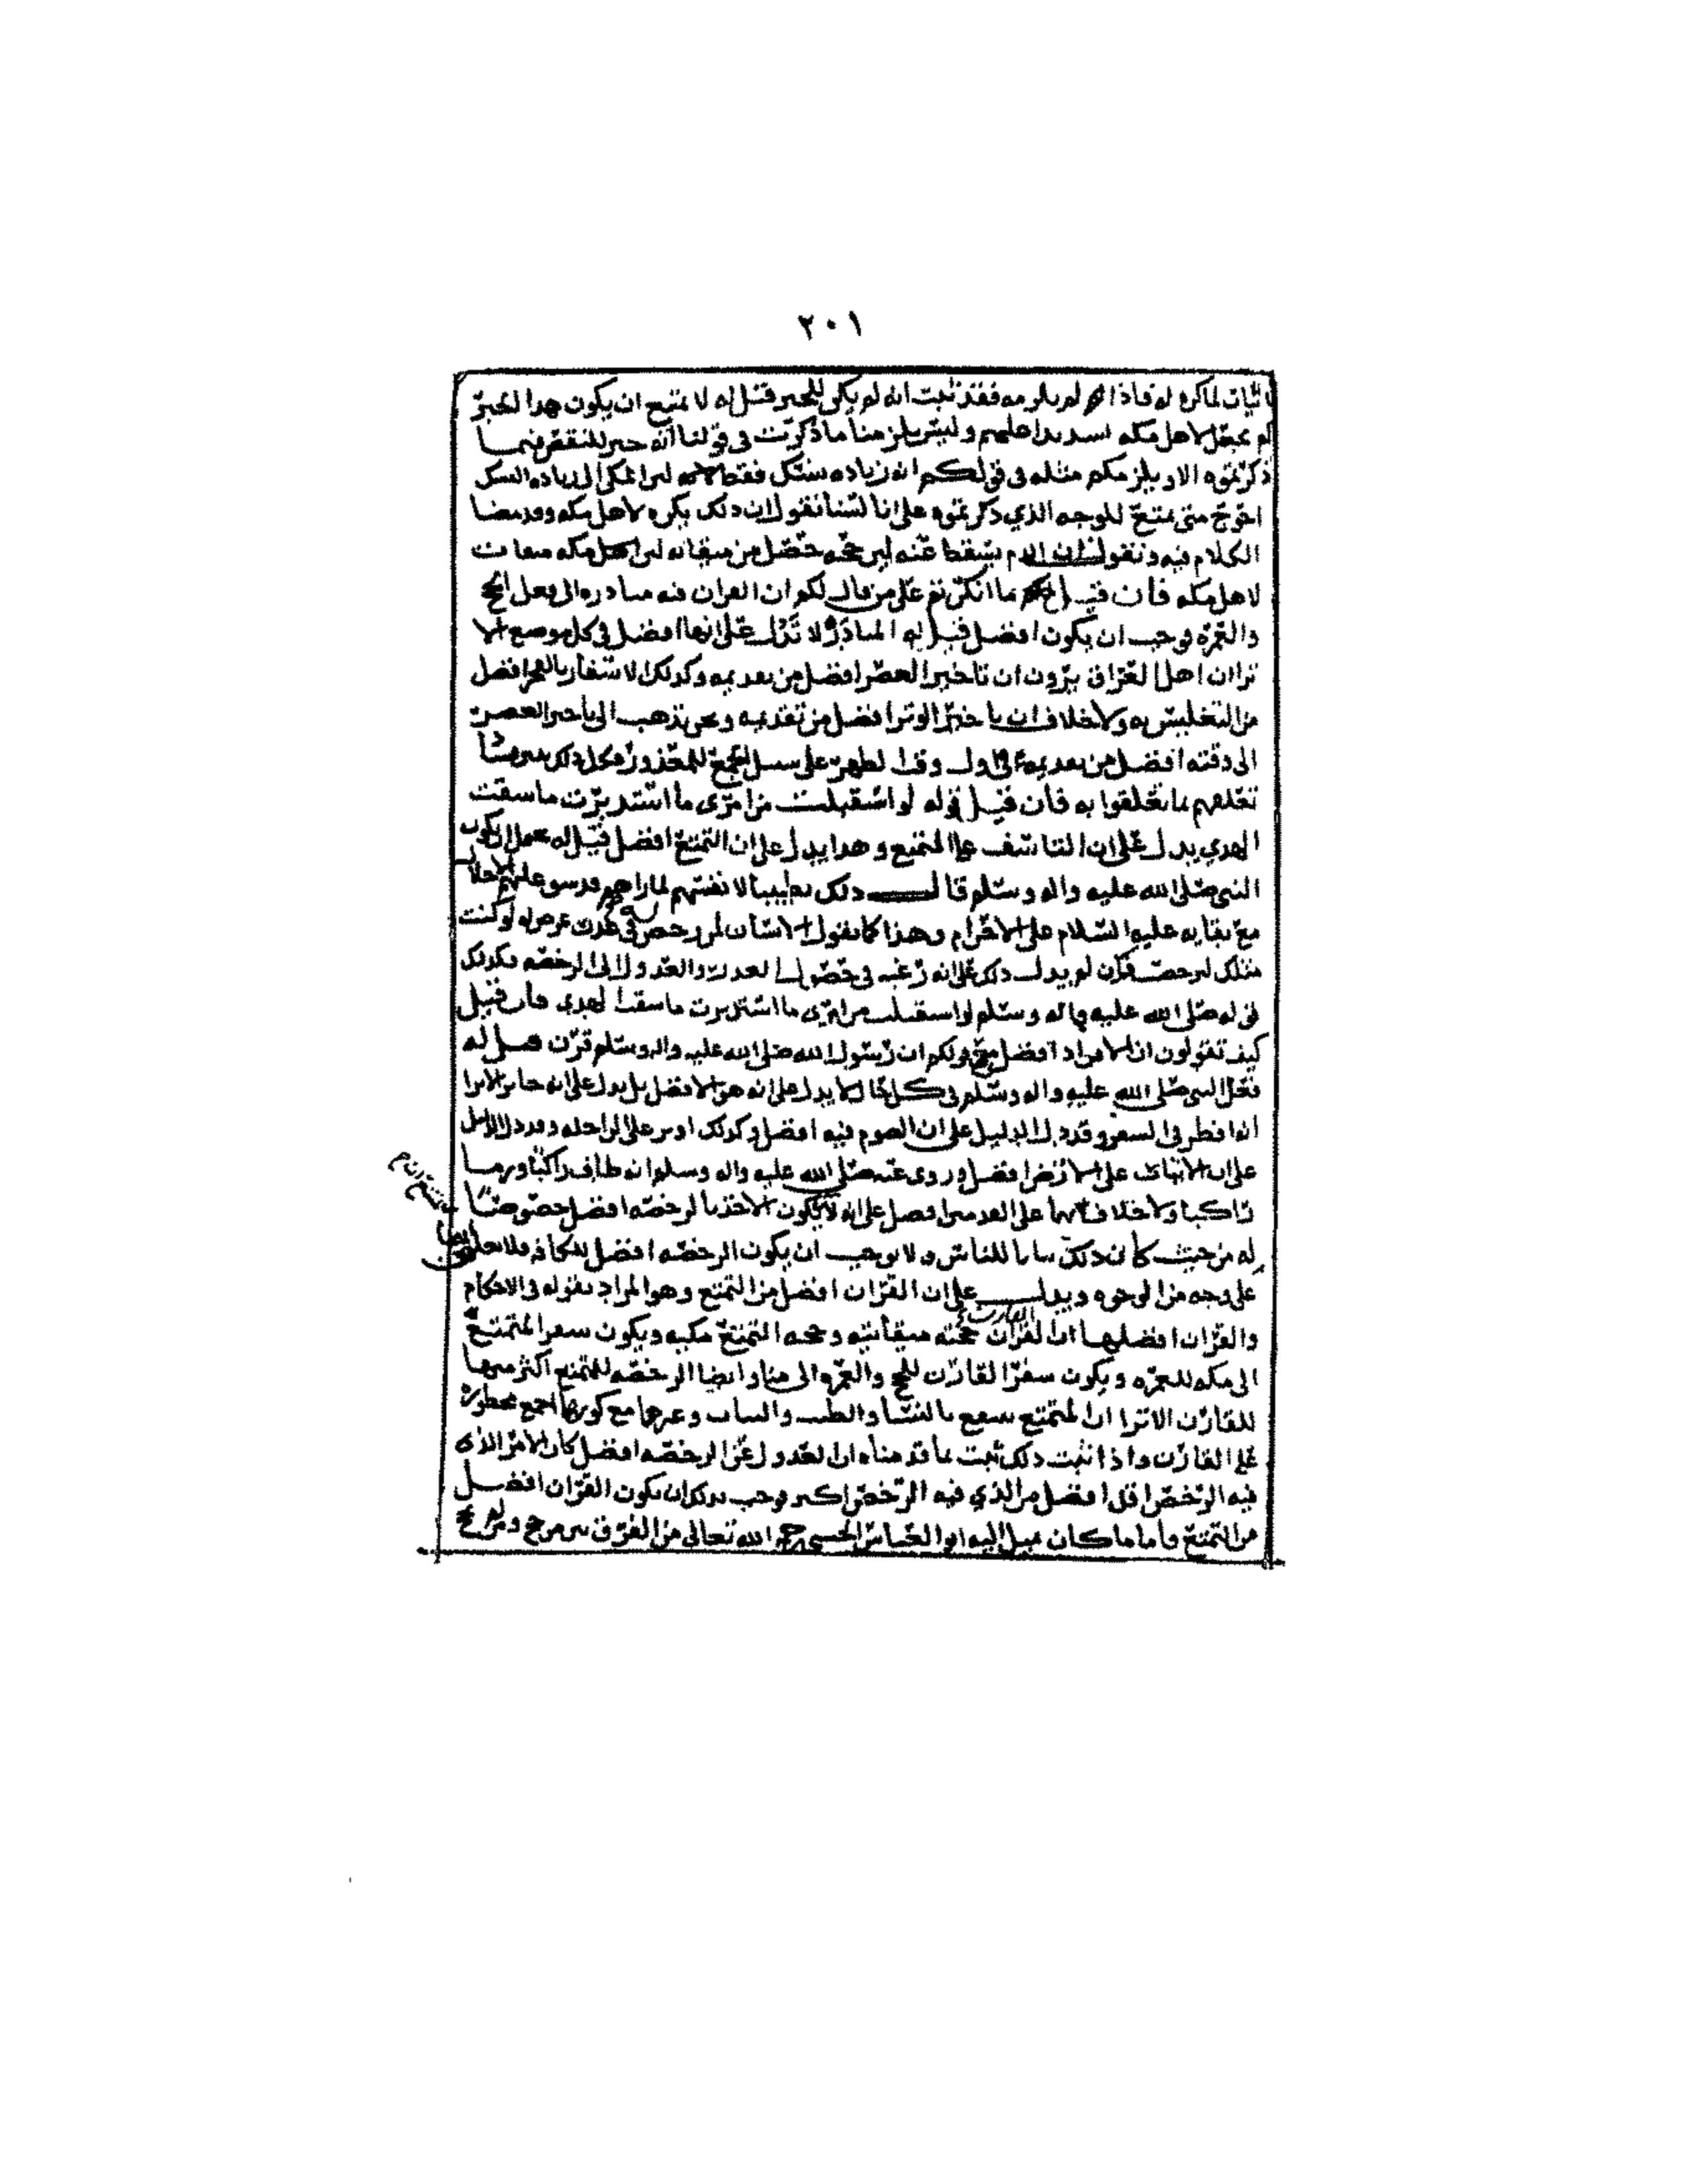 ٢٠١
باثبات لما كره له فاذا لم يلزمه فقد ثبت انه لم يكن للجبر قيل له لا يمتنع ان يكون هدا الجبر
لم يجعل لاهل مكه علىهم وليس يلزمنا ما ذكرت فى قولنا انه جبر للنقص فيما
ذكرتموه الا ويلزمكم مثله فى قولكم انه زياده نسك فقط لان المكى الى زياده النسك
احوج متى تمتع للوجه الذي ذكرتموه على انا لسنا نقول ان ذلك يكره لاهل مكه وقد مضا
الكلام فيه ونقول ان الدم يسقط عنه لان حجه حصل من ميقاته لان مكه ميقات
لاهل مكه فان قيل ما انكرتم على من قال لكم ان القران فيه مبادره الى فعل الحج
والعمره فوجب ان يكون افضل قيل له المبادره لا تدل على انها افضل فى كل موضع الا
ترا ان اهل العراق يرون ان تاخير العصر افضل من تقديمه وكذلك الاسفار بالفجر افضل
من التغليس به ولا خلاف ان تاخير الوتر افضل من تقديمه ونحن نذهب الى تاخير العصر
الى وقته افضل من تقديمه فى اول وقت الظهر على سبيل الجمع للمعذور وكل ذلك
تعلقهم بما تعلقوا به فان قيل قوله لو استقبلت من امرى ما استدبرت ما سقت
الهدي يدل على ان التاسف على التمتع وهدا يدل على ان التمتع افضل قيل له يحتمل ان يكون
النبي صلى الله عليه واله وسلم قال ذلك تطييبا لانفسهم لما راهم عليهم الاحلال
مع بقايه عليه السلام على الاحرام وهذا كما يقول الانسان لمن رخص فى لو كنت
مثلك لرخصت فان لم يدل ذلك على انه رغبه فى حصول العذر والعدول الى الرخصه فكذلك
قوله صلى الله عليه واله وسلم لو استقبلت من امرى ما استدبرت ما سقت الهدى فان قيل
كيف تقولون ان الافراد افضل مع قولكم ان رسول الله صلى الله عليه واله وسلم قرن قيل له
فعل النبى صلى الله عليه واله وسلم فى كل حال لا يدل على انه هو الافضل بل يدل على انه جايز الا ترا
انه افطر فى السفر وقد دل الدليل على ان الصوم فيه افضل وكذلك اوتر على الراحله وقد دل الدليل
على ان الاتيان على الارض افضل وروى عنه صلى الله عليه واله وسلم انه طاف راكبا ورما
راكبا ولا خلاف على القدمين افضل على انه لا يكون الاخذ بالرخصه افضل خصوصا
له من حيث كان ذلك بيانا للناس ولا يوجب ان يكون الرخصه افضل للكافه فلا تعلق
على وجه من الوجوه ويدل على ان القران افضل من التمتع وهو المراد بقوله فى الاحكام
والقران افضلها ان القران حجته ميقاتيه وحجه التمتع مكيه ويكون سفر المتمتع
الى مكه للعمره ويكون سفر القارن للحج والعمره الى منا وايضا الرخصه للمتمتع اكثر منها
للقارن الا ترا ان المتمتع بالنسا والطيب والثياب وغيرها مع كونها اجمع محظوره
على القارن واذا ثبت ذلك ثبت بما قدمناه ان العدول عن الرخصه افضل كان الامر الذى
فيه الرخص اقل افضل من الذي فيه الرخص اكثر فوجب بذلك ان يكون القران افضل
من التمتع واما ما كان يميل اليه ابو العباس الحسني رحمه الله تعالى من الفرق بين من حج ومن لم يحج